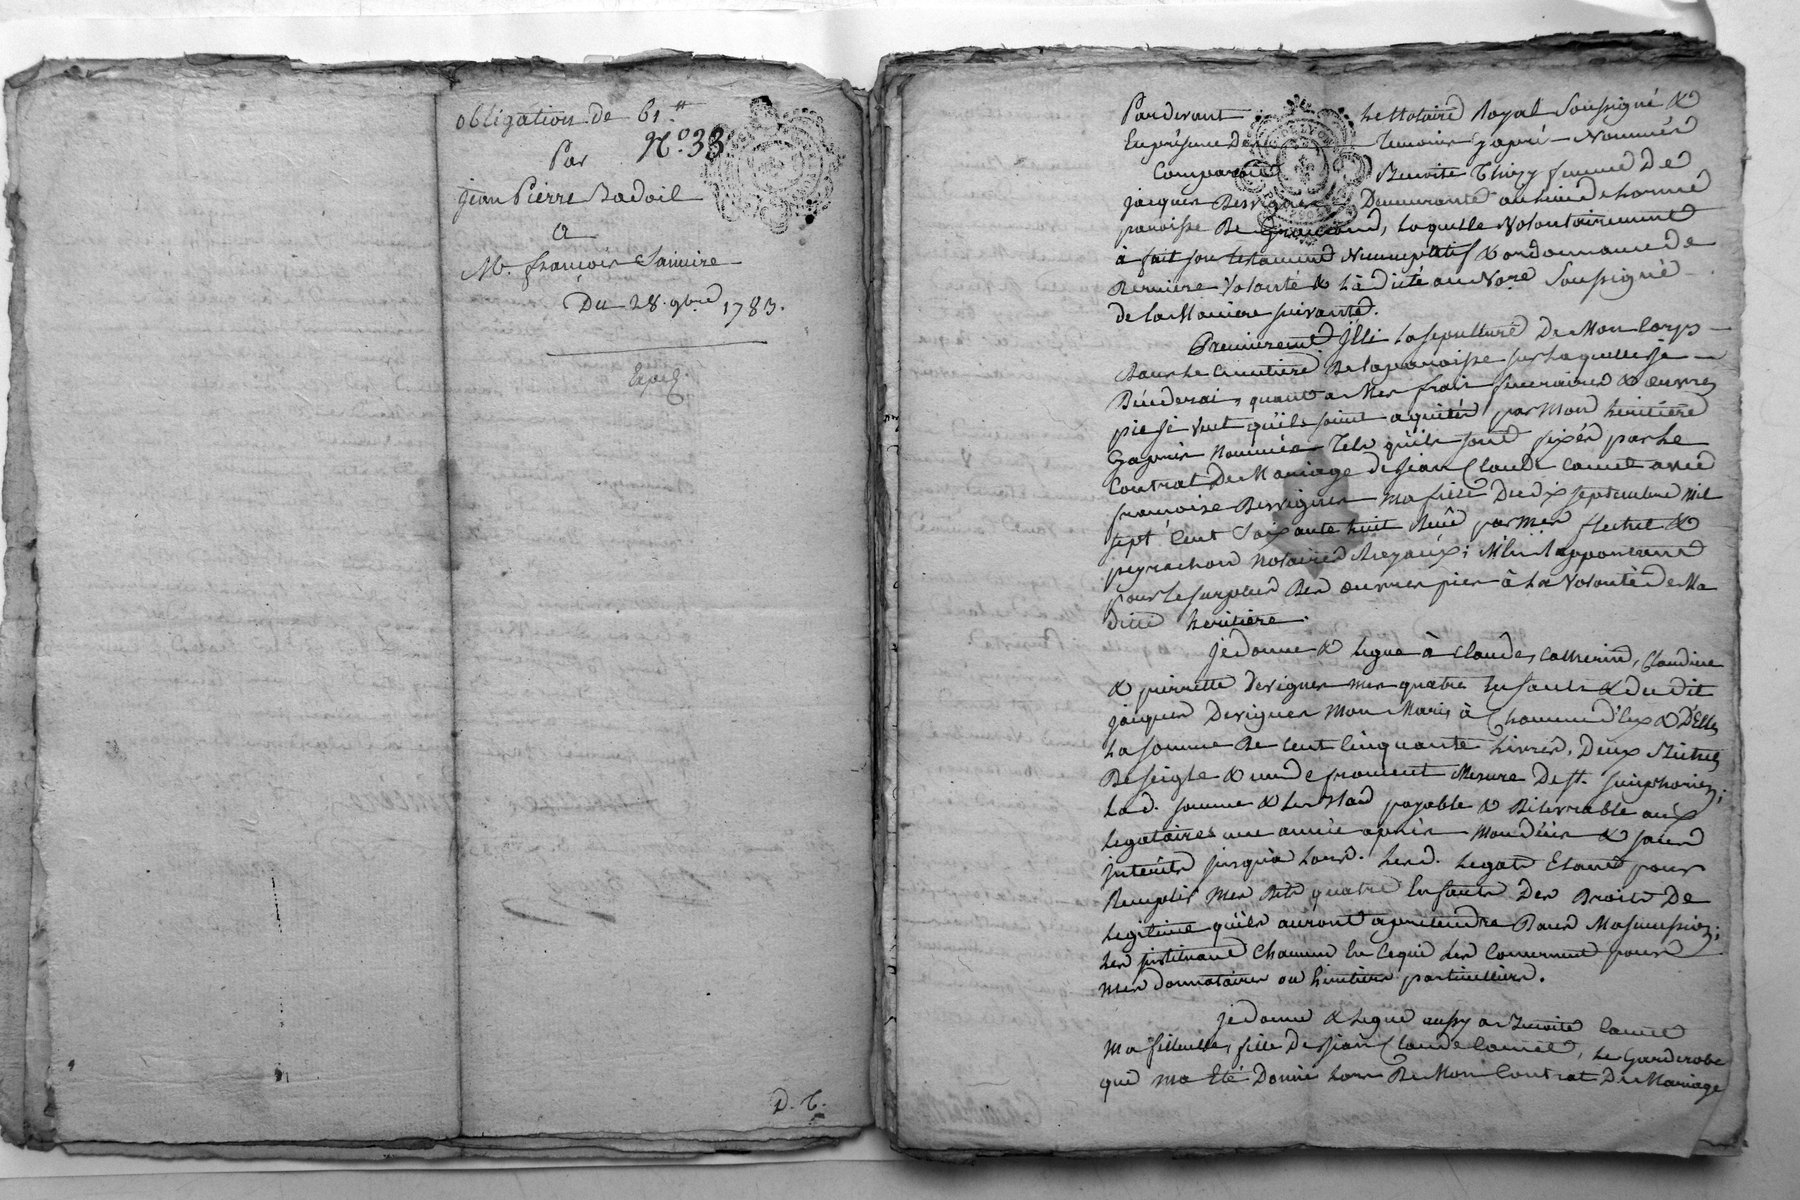 obligation de 61.ᵗᵗ
N.º 33
Par
jean Pierre Badoil
a
Mr. françois Sauvire
Du 28. 9bre 1783.
Expé.
D. C.
Pardevant Le Notaire Royal Soussigné &
En présence Des Temoins Cyaprés Nommés
Comparoit Benoite Thizy femme De
jacques Desvignes Demeurante au lieu de
paroisse De Laquelle Volontairement
à fait son testament Nuncupatif & ordonnance de
Derniere Volonté & L'à Dicté au No.re Soussigné
de la Maniere suivante.
Premierement J'Eli La sepulture De Mon Corps
Dans Le Cimetiere De la paroisse sur Laquelle je
Décéderai, quant a Mes frais funeraires & œuvres
pie je Veut qu'ils soint aquités par Mon héritiere
Cyaprés Nommée Tels qu'ils sont fixés par Le
Contrat De Mariage de jean Claude Camet avec
françoise Desvignes Ma fille Du dix septembre Mil
sept Cent Soixante huit Reçû par Mes &
peyrachon Notaires Royaux; M'En Rapportant
pour Le surplus Des œuvres pies à La Volonté de Ma
ditte heritiere.
je donne & Legue à Claude, Catherine, Claudine
& pierrette Desvignes Mes quatre Enfants & du dit
jacques Desvignes Mon Mari, à Chacun d'Eux & D'Elles
La somme De Cent Cinquante Livres, Deux
De seigle & un de froment Mesure De St. Simphorien;
La d. somme & Les payable & Délivrable aux
Legataires une année aprés Mon Décés & sans
jntérêts jusqu'à Lors. Lesd. Legats Etant pour
Remplir Mes Dits quatre Enfants Des Droits De
Legitime qu'ils auront a pretendre Dans Ma succession;
Les jnstituant Chacun En Ceque Les Concernent pour
Mes donnataires ou héritiers particulliers.
je donne & Legue aussy a Benoite Camet
Ma filleulle, fille De jean Claude Camet, Le Garderobe
que ma Eté Donné Lors De Mon Contrat De Mariage